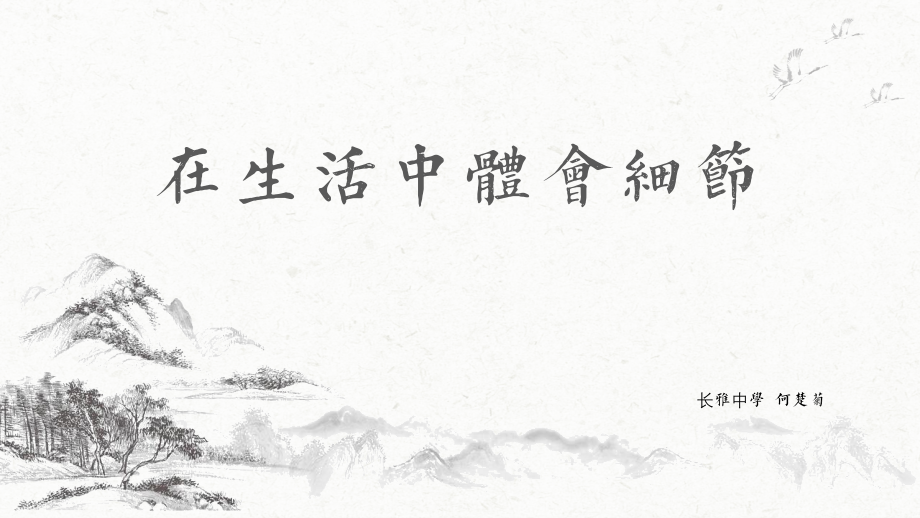 在生活中體會細節
长雅中學 何楚菊